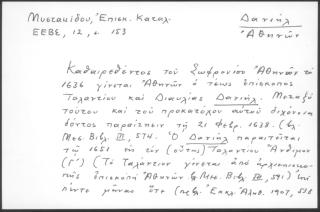 Μυστακίδου, Ἐπισκ. Καταλ.
ΕΕΒΣ, 12, σ. 153
Δανιὴλ
Ἀθηνῶν
Καθαιρεθέντος τοῦ Σωφρονίου Ἀθηνῶν τῷ
1636 γίνεται Ἀθηνῶν ὁ τέως ἐπίσκοπος
Ταλαντίου καὶ Διαυλίας Δανιήλ. Μεταξὺ
τούτου καὶ τοῦ προκατόχου αὐτοῦ διχόνοια
δόντος παραίτησιν τῇ 21 Φεβρ. 1638. (βλ.
Μεσ. Βιβλ. III, 574. Ὁ Δανιὴλ παραιτεῖται
τῷ 1651 ἐν τὸν (οὕτως) Ταλαντίου Ἄνθιμον
(Γ') (Τὸ Ταλάντιον γίνεται ἀπὸ ἀρχιεπισκοπῆς
ἐπισκοπὴ Ἀθηνῶν Μεσ. Βιβλ. III, 591) ἐπὶ
πέντε μῆνας ὅτε (πρβ. Ἐκκλ. Ἀλήθ. 1907, 538